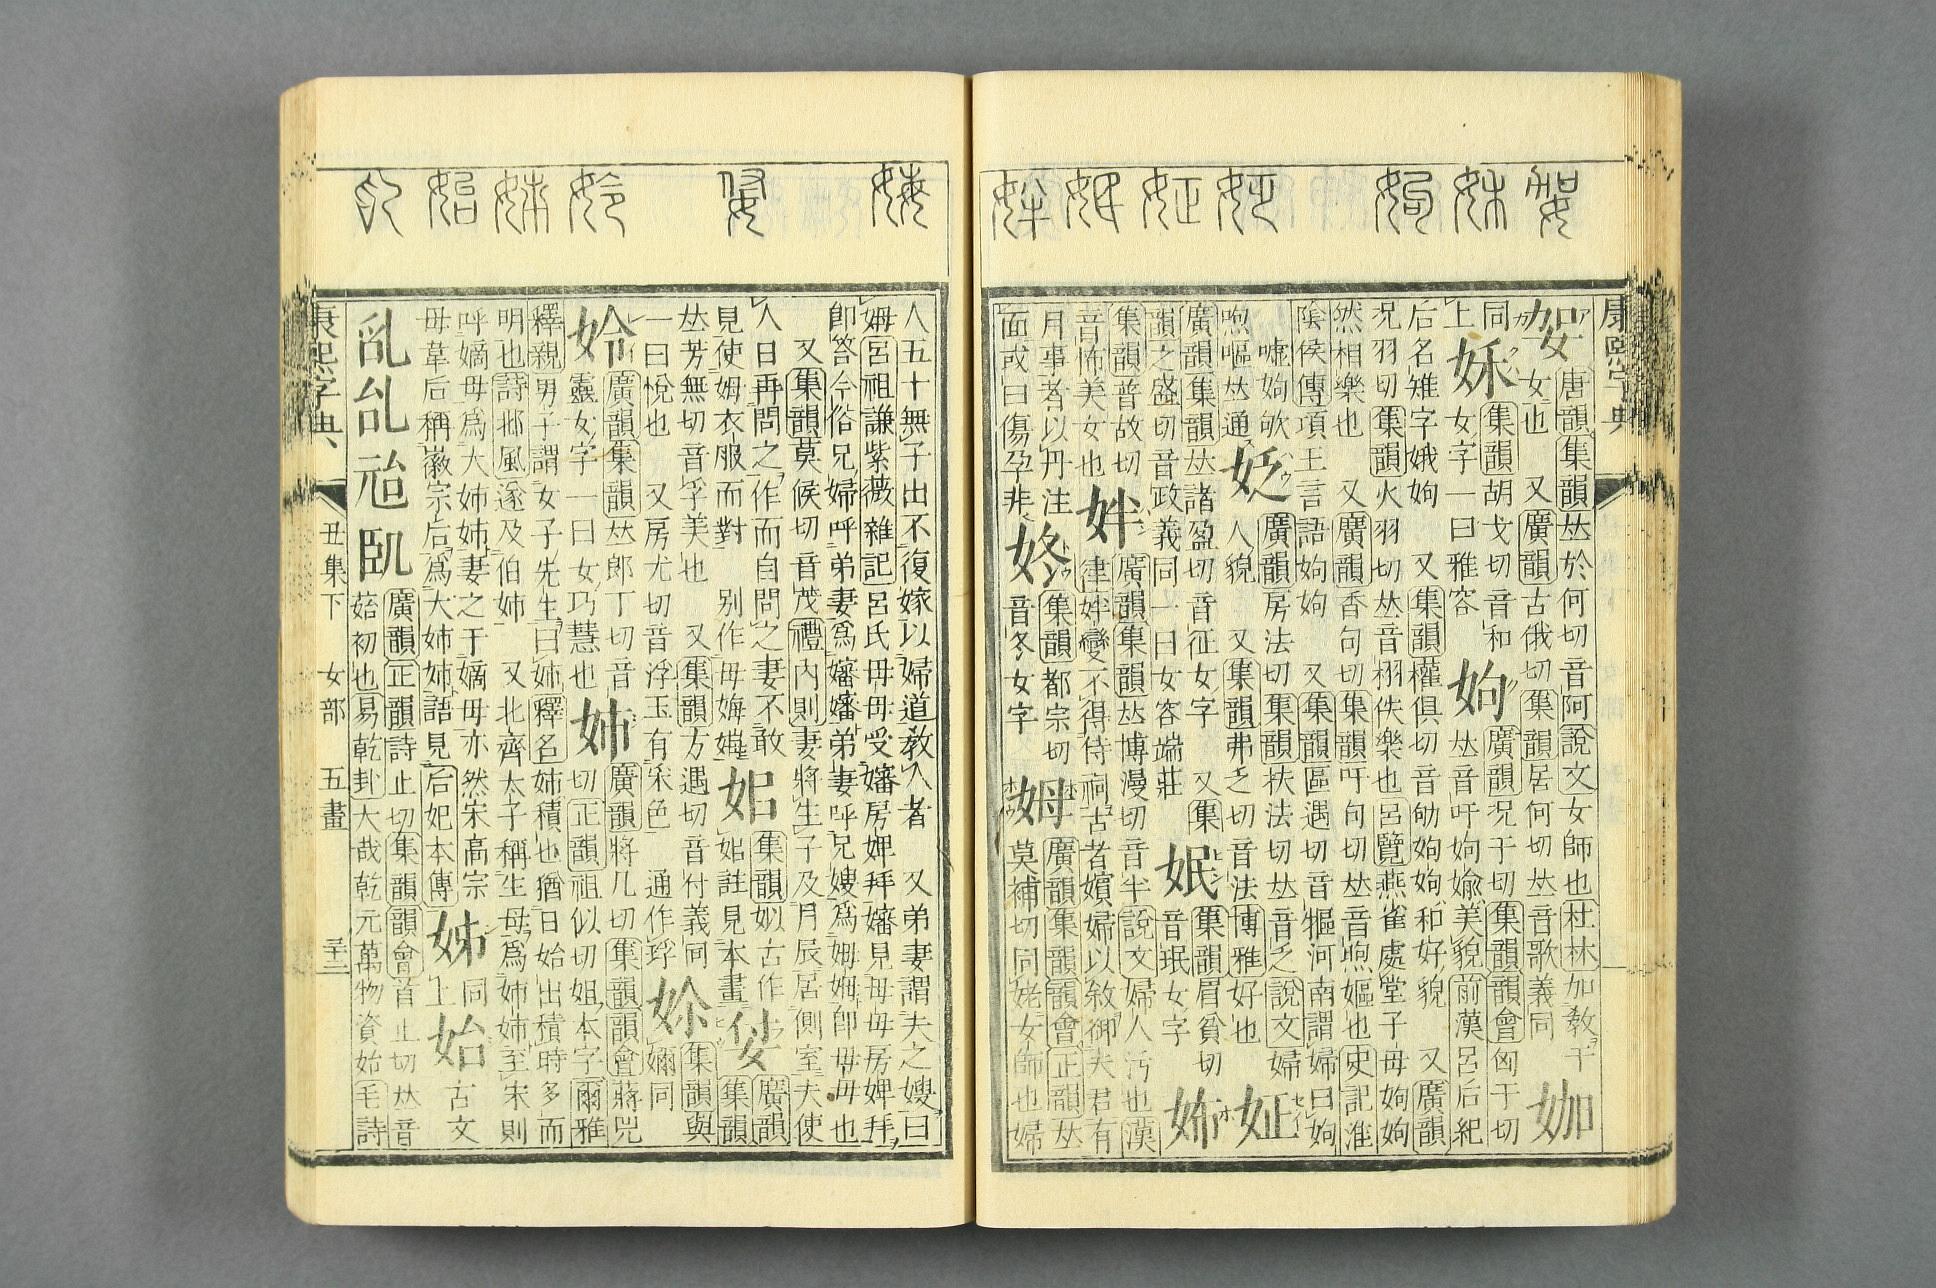 康熙字典
妿 唐韻集韻𠀤於何切音阿說文女師也杜林加敎于
女也 又廣韻古俄切集韻居何切𠀤音歌義同
同
上
集韻胡戈切音和
女字一曰雅容
姁 廣韻況于切集韻韻會匈于切
𠀤音吁姁媮美貌前漢呂后紀
后名雉字娥姁 又集韻權俱切音劬姁姁和好貌 又廣韻
況羽切集韻火羽切𠀤音栩佚樂也呂覽燕雀處堂子母姁姁
然相樂也 又廣韻香句切集韻吁句切𠀤音煦嫗也史記淮
陰侯傳項王言語姁姁 又集韻區遇切音驅河南謂婦曰姁
嘘姁欨
喣嘔𠀤通
姂 廣韻房法切集韻扶法切𠀤音乏說文婦
人貌 又集韻弗乏切音法博雅好也
姃 廣韻集韻𠀤諸盈切音征女字 又集
韻之盛切音政義同一曰女容端莊
姄 集韻眉貧切
音珉女字
姉
集韻普故切
音怖美女也
姅 廣韻集韻𠀤博漫切音半說文婦人汚也漢
律姅變不得侍祠古者嬪婦以敘御夫君有
月事者以丹注
面或曰傷孕非
㚵 集韻都宗切
音冬女字
姆 廣韻集韻韻會正韻𠀤
莫補切同姥女師也婦
人五十無子出不復嫁以婦道敎人者 又弟妻謂夫之嫂曰
姆呂祖謙紫薇雜記呂氏母母受嬸房婢拜嬸見母母房婢拜
卽答今俗兄婦呼弟妻爲嬸嬸弟妻呼兄嫂爲姆姆卽母母也
又集韻莫候切音茂禮內則妻將生子及月辰居側室夫使
人日再問之作而自問之妻不敢
見使姆衣服而對 別作母娒
集韻姒古作
註見本畫
廣韻集韻
𠀤芳無切音孚美也 又集韻方遇切音付義同
一曰悅也 又房尤切音浮玉有采色 通作琈
集韻與
嬭同
姈 廣韻集韻𠀤郎丁切音
靈女字一曰女巧慧也
姊 廣韻將几切集韻韻會蔣兕
切正韻祖似切姐本字爾雅
釋親男子謂女子先生曰姊釋名姊積也猶日始出積時多而
明也詩邶風遂及伯姊 又北齊太子稱生母爲姊姊至宋則
呼嫡母爲大姊姊妻之于嫡母亦然宋高宗
母韋后稱徽宗后爲大姊姊語見后妃本傳
姊 同
上
始 古文
廣韻正韻詩止切集韻韻會首止切𠀤音
菭初也易乾卦大哉乾元萬物資始毛詩
康熙字典 丑集下 女部 五畫